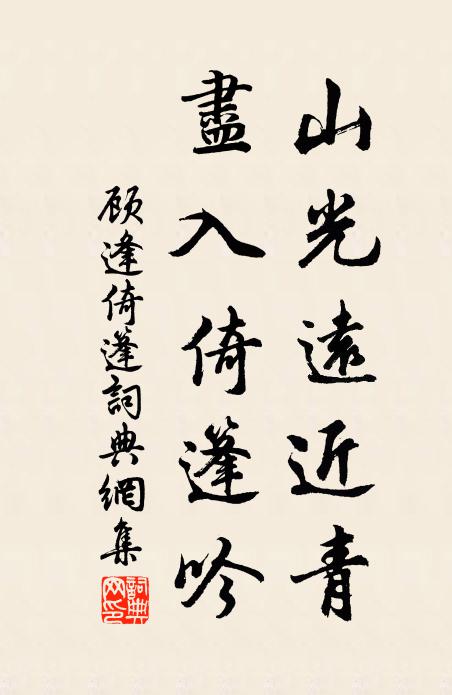 山光遠近青
盡入倚篷吟
顾逢倚篷詞典網集
詞典網印